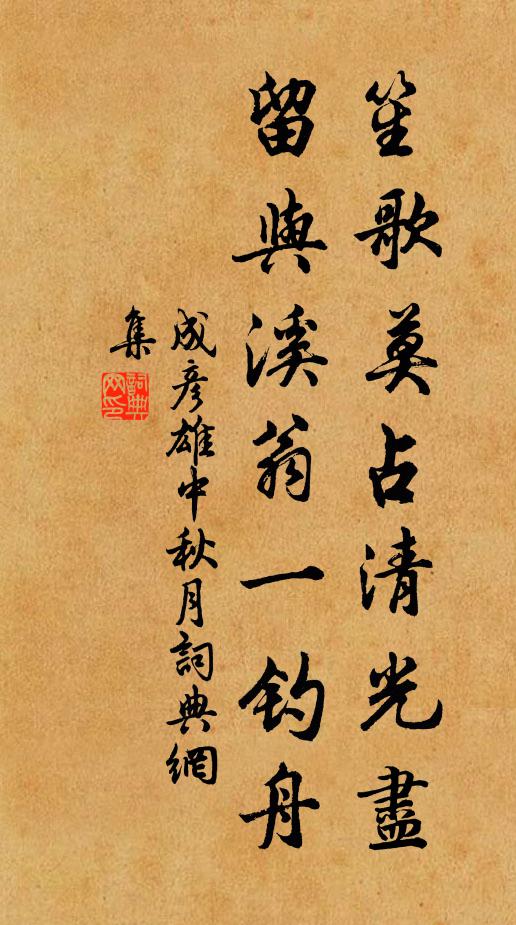 笙歌莫占清光盡
留與溪翁一釣舟
成彥雄中秋月詞典網
集
詞典
网印